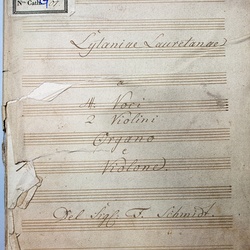 No Cath. 57
Lytaniae Lauretanae
a
4. Voci
2 Violini
Organo
e
Violone.
Del Sigl: F. Schmidt.